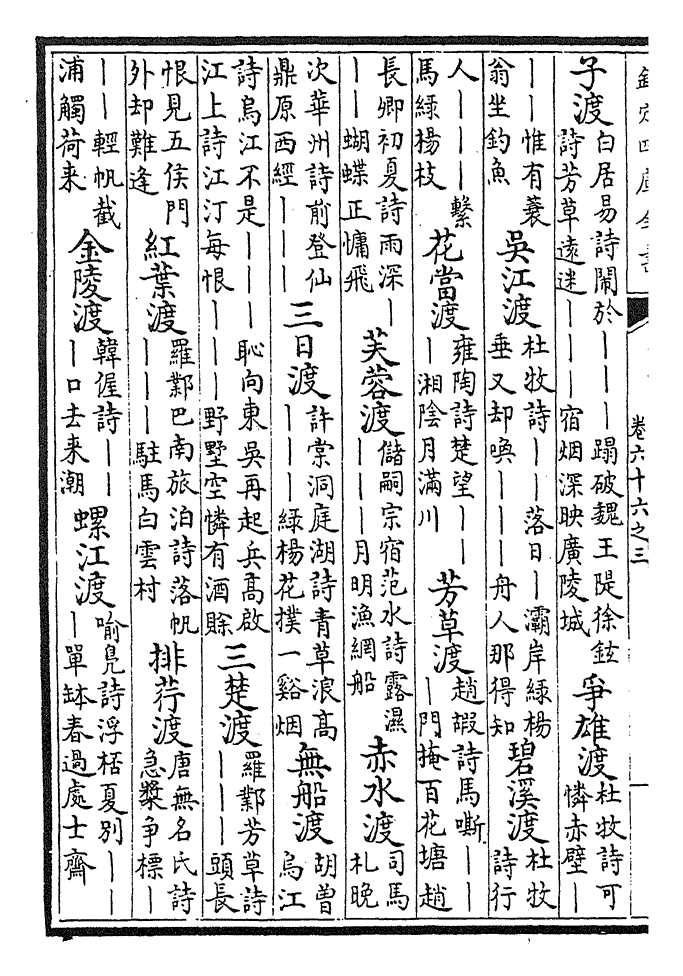 欽定四庫全書
卷六十六之三
子渡白居易詩鬧於｜｜｜蹋破魏王隄徐鉉詩芳草遠迷｜｜｜宿烟深映廣陵城爭雄渡杜牧詩可憐赤壁｜
｜｜惟有蓑翁坐釣魚吳江渡杜牧詩｜｜落日｜灞岸緑楊垂又却喚｜｜｜舟人那得知碧溪渡杜牧詩行
人｜｜｜繫馬緑楊枝花當渡雍陶詩楚望｜｜｜湘陰月滿川芳草渡趙嘏詩馬嘶｜｜｜門掩百花塘趙
長卿初夏詩雨深｜｜｜蝴蝶正慵飛芙蓉渡儲嗣宗宿范水詩露濕｜｜｜月明漁網船赤水渡司馬札晚
次華州詩前登仙鼎原西經｜｜｜三日渡許棠洞庭湖詩青草浪高｜｜｜緑楊花撲一谿烟無船渡胡曽烏江
詩烏江不是｜｜｜恥向東吳再起兵高啟江上詩江汀每恨｜｜｜野墅空憐有酒賖三楚渡羅鄴芳草詩｜｜｜頭長
恨見五侯門外却難逢紅葉渡羅鄴巴南旅泊詩落帆｜｜｜駐馬白雲村排荇渡唐無名氏詩急槳争標｜
｜｜輕帆截浦觸荷来金陵渡韓偓詩｜｜｜口去来潮螺江渡喻鳧詩浮桮夏別｜｜｜單缽春過處士齋